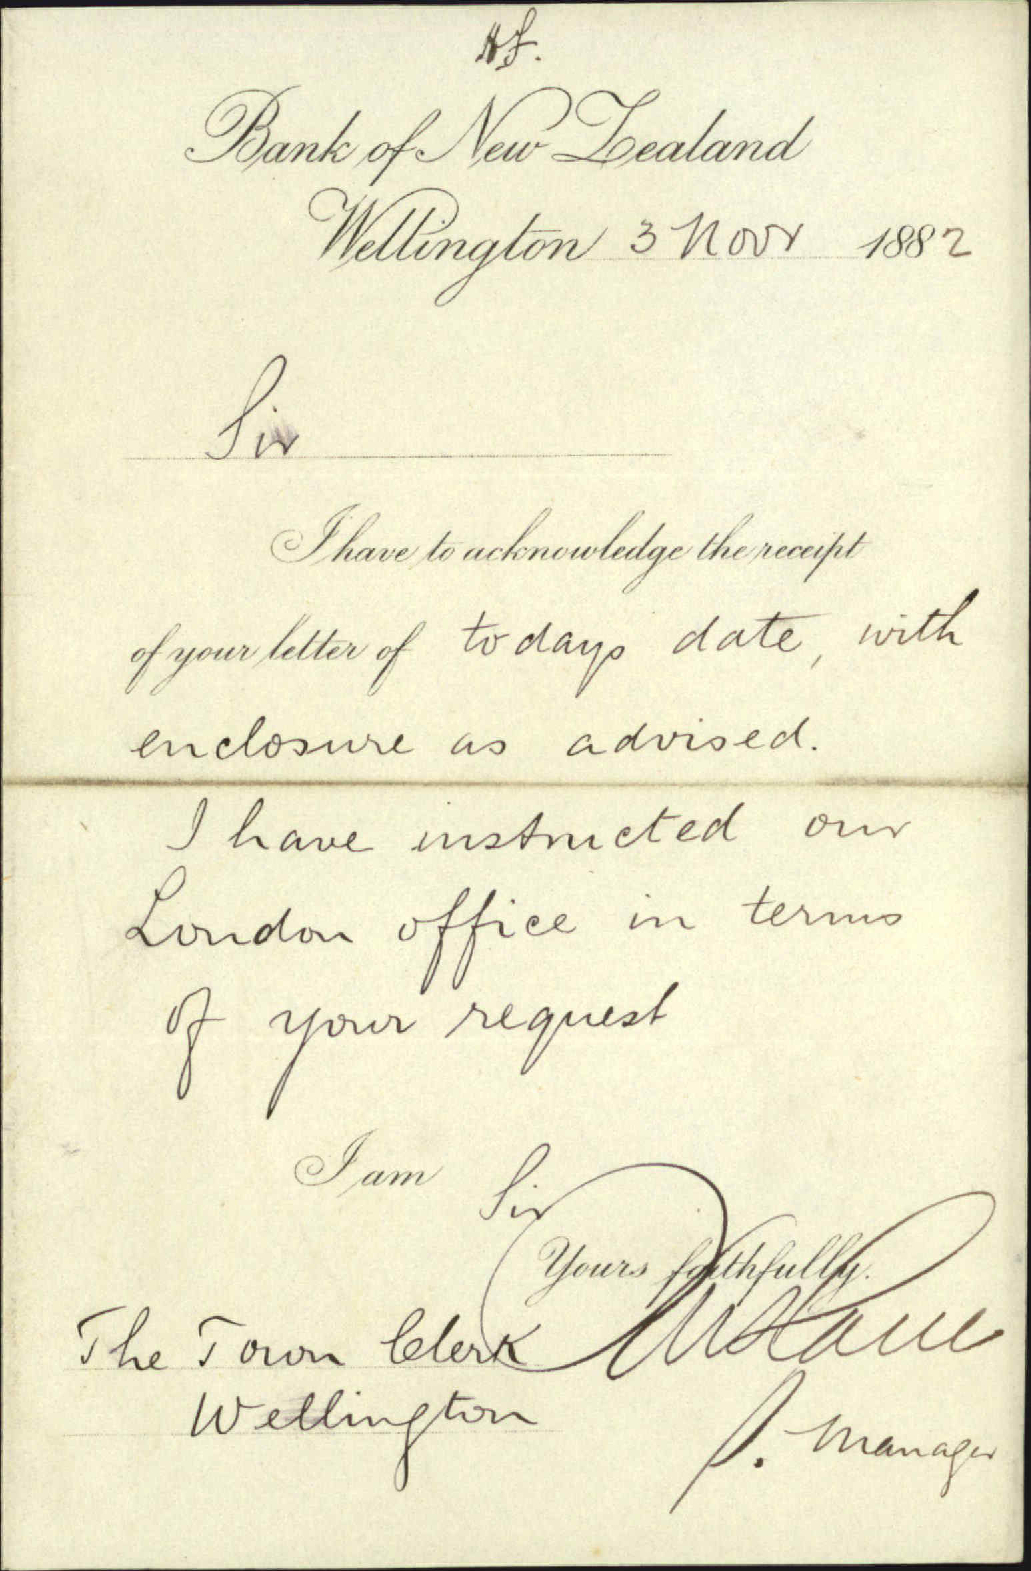 Bank of New Zealand
Wellington 3 Novr 1882
Sir
I have to acknowledge the receipt
of your letter of todays date, with
enclosure as advised.
I have instructed our
London office in terms
of your request
I am Sir
Yours faithfully.
The Town Clerk
Wellington
Manager